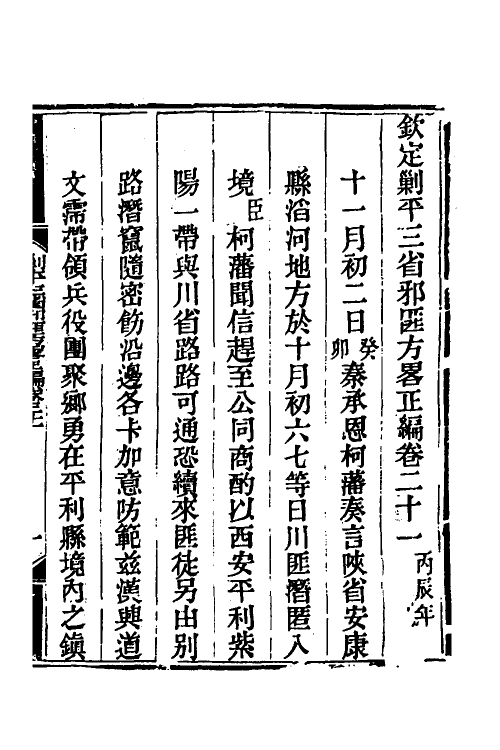 欽定剿平三省邪匪方畧正編卷二十一 丙辰年
十一月初二日癸卯秦承恩柯藩奏言陝省安康
縣滔河地方於十月初六七等日川匪潛匿入
境臣柯藩聞信趕至公同商酌以西安平利紫
陽一帶與川省路路可通恐續來匪徒另由別
路潛竄隨密飭沿邊各卡加意防範茲漢興道
文霈帶領兵役團聚鄉勇在平利縣境內之鎭